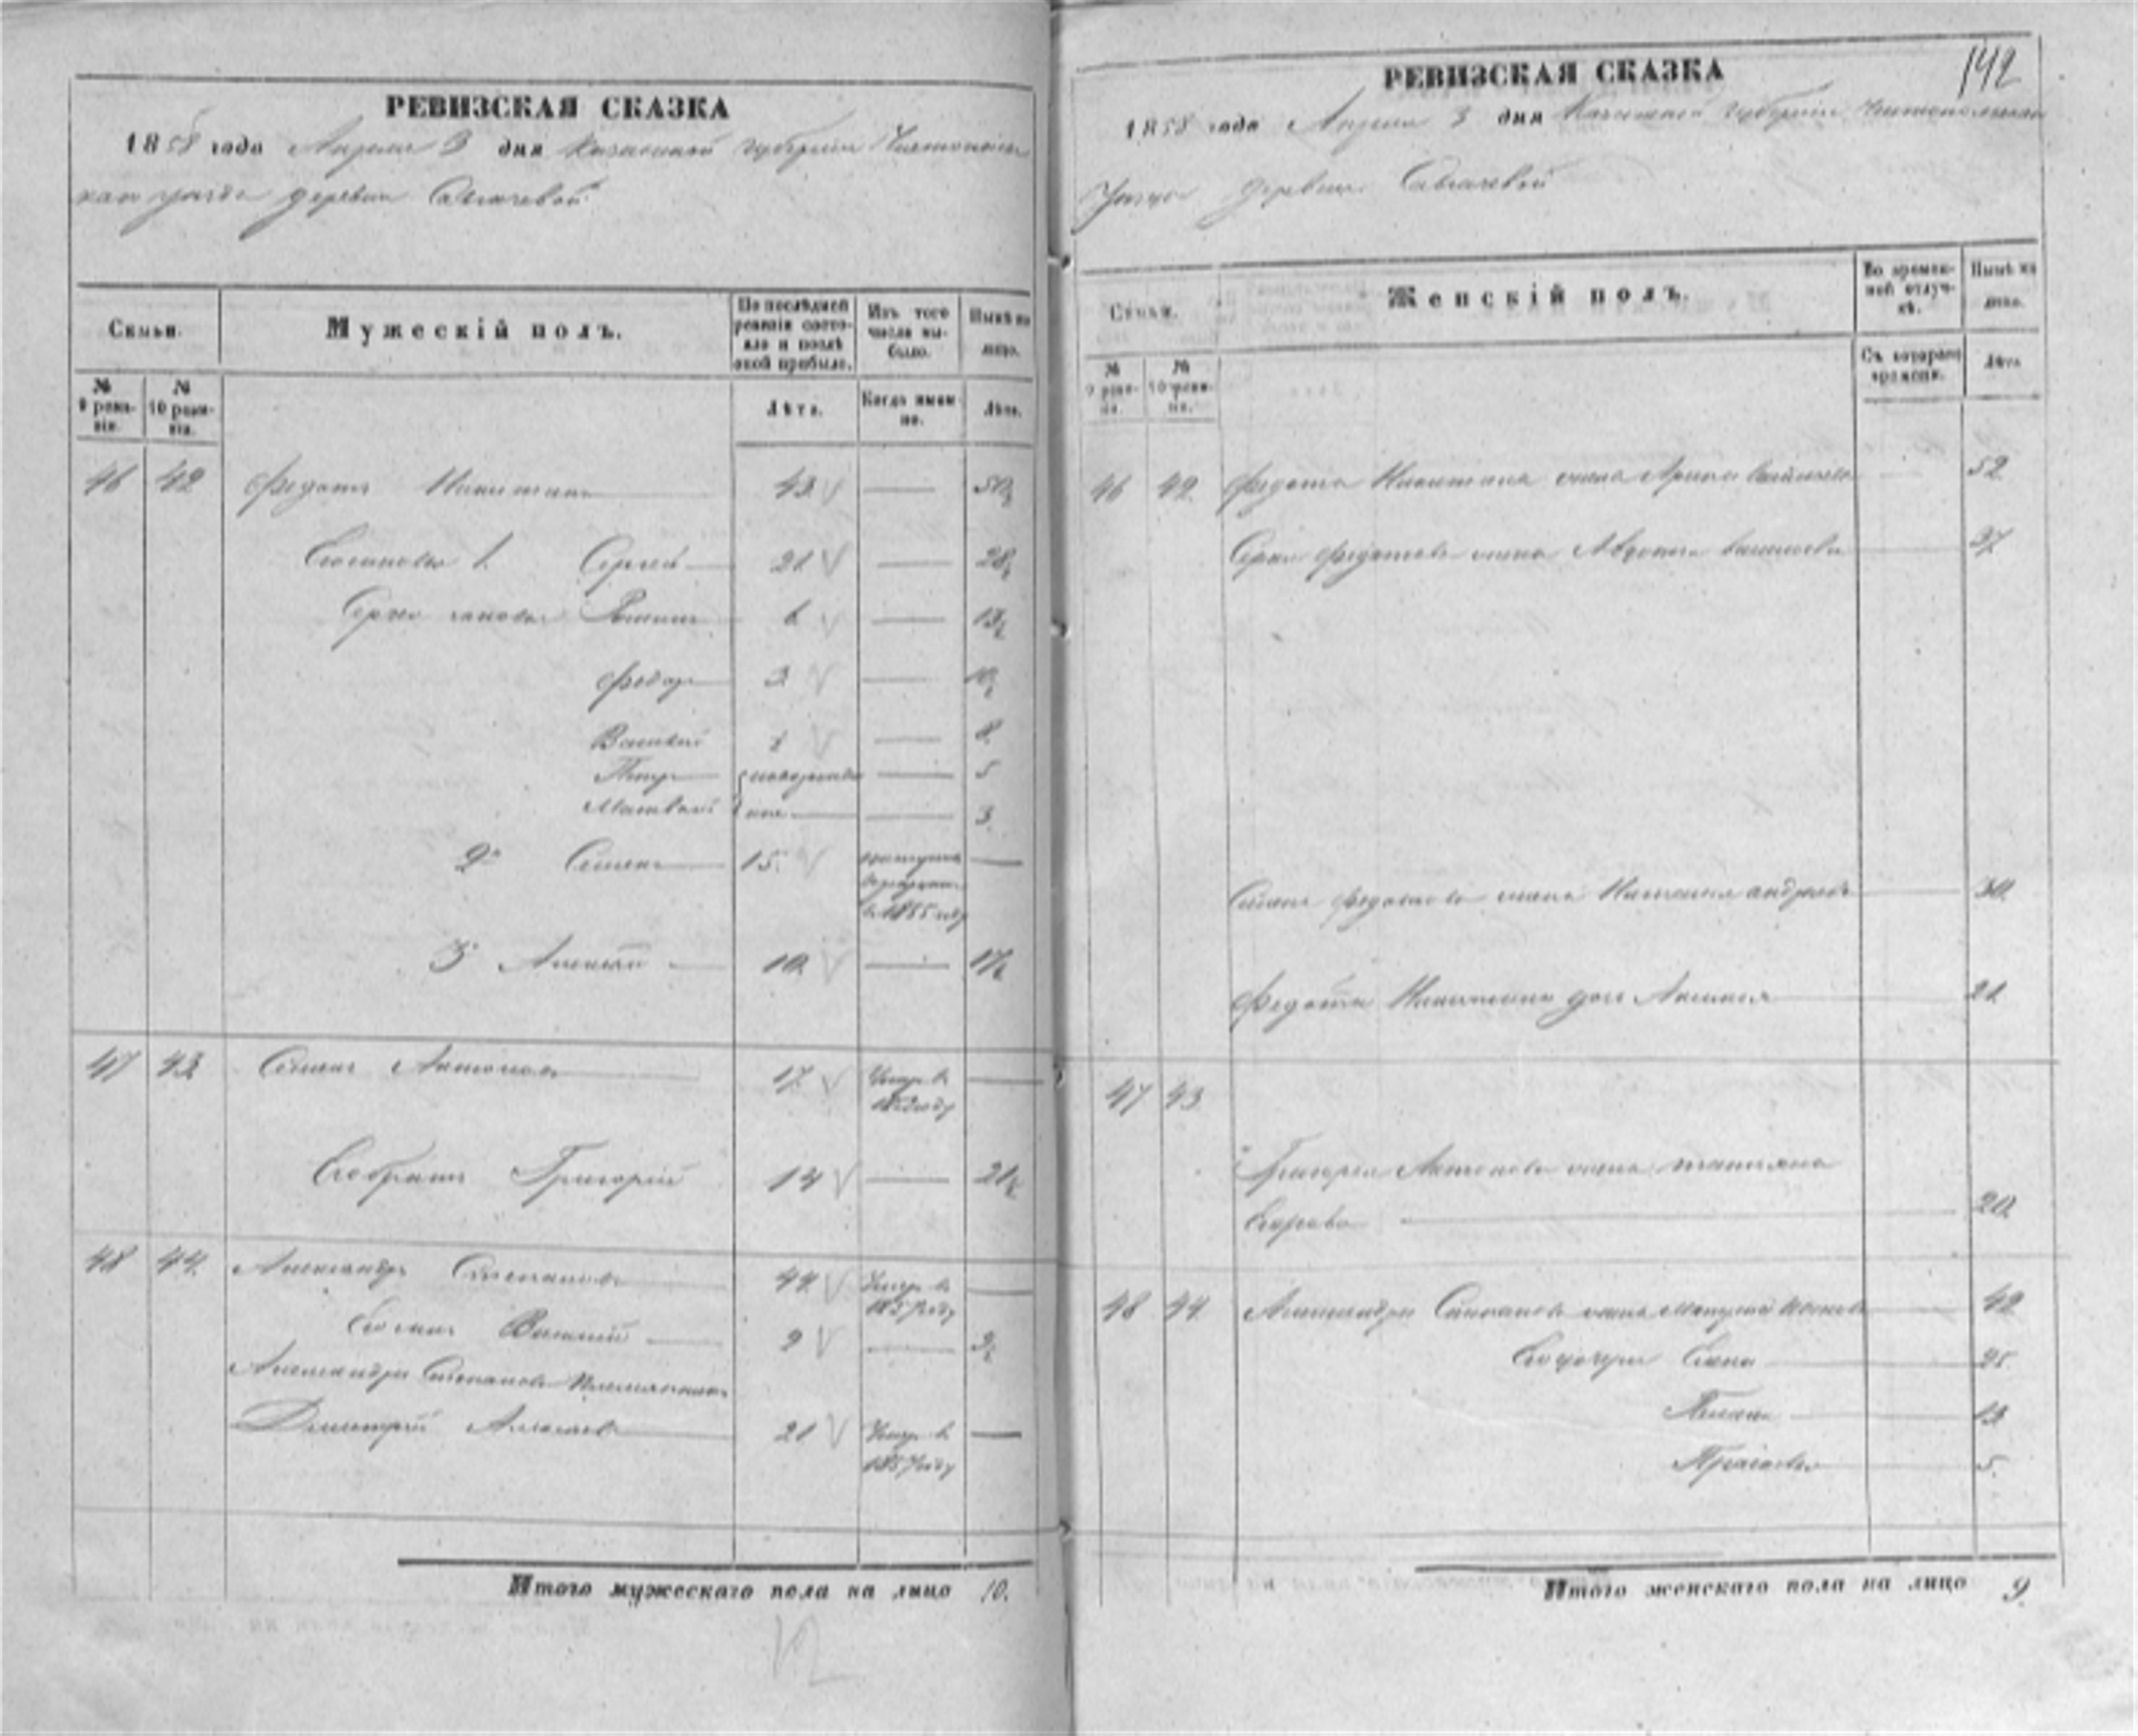 РЕВИЗСКАЯ СКАЗКА
1858 года Апреля 3 дня Казанской губернии Чистополь
скаго уезда деревни
Семьи.
Мужескій полъ.
По последней ревизіи состояло и после оной прибыло.
Изъ того числа выбыло.
Ныне на лицо.
№ 9 ревизіи.
№ 10 ревизіи.
Лѣта.
Когда именно.
Лѣта.
46 42 Федотъ Никитинъ 43 50½
Сыновья 1. Сергей 21 28½
Сергея сыновья 6 13½
Федоръ 3 10½
Василий 1 8
Петръ новорожден 5
Матвей ные 3
2й Семенъ 15.
в 1855 году
3 Алексей 10 17½
47 43 Семенъ Антоновъ 17 Умер в
году
Его братъ Григорій 14 21½
48 44 Александръ Степановъ 44 Умер в
1857 году
Его сынъ Василий 2 9½
Александра Степанова племянникъ
Дмитрій 21 Умер в
1857 году
Итого мужескаго пола на лицо 10.
12
142
РЕВИЗСКАЯ СКАЗКА
1858 года Апреля 3 дня Казанской губернии Чистопольскаго
Уезда деревни
Семьи.
Женскій полъ.
Во временной отлучкѣ.
Нынѣ на лицо.
№ 9 ревизіи.
№ 10 ревизіи.
Съ котораго времени.
Лѣта
46 42 Федота Никитина жена Арина 52
Сергея Федотова жена Авдотья Васильева 27
Семена Федотова жена Наталья Андреева 30
Федота Никитина дочь 21
47 43
Григорья Антонова жена Татьяна
Егорова 20
48 44 Александра Степанова жена 42
Его дочери Елена 25
13
Прасковья 5.
Итого женскаго пола на лицо 9.